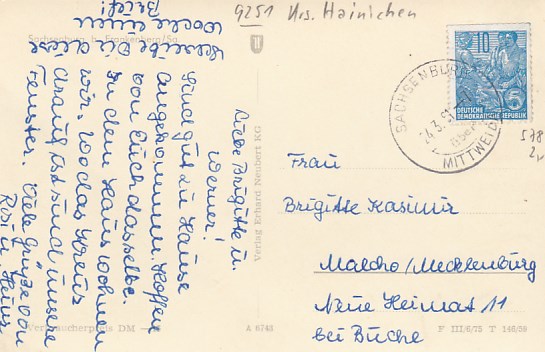 9251 Krs. Hainichen
Sachsenburg b. Frankenberg/Sa.
Liebe Brigitte u.
Werner!
Sind gut zu Hause
angekommen. Hoffen
von Euch dasselbe.
In dem Haus wohnen
wir. Wo das Kreuz
drauf ist sind unsere
Fenster. Viele Grüße von
Rosi u. Heinz
schreibe Dir diese
Woche einen
Brief!
Verlag Erhard Neubert KG
Verbraucherpreis DM
A 6745
10
DEUTSCHE
DEMOKRATISCHE REPUBLIK
5
SACHSENBURG
MITTWEIDA
24.3.
Frau
Brigitte Kasimir
Malcho/Mecklenburg
Neue Heimat 11
bei Buche
578
F III/6/15 T 146/59